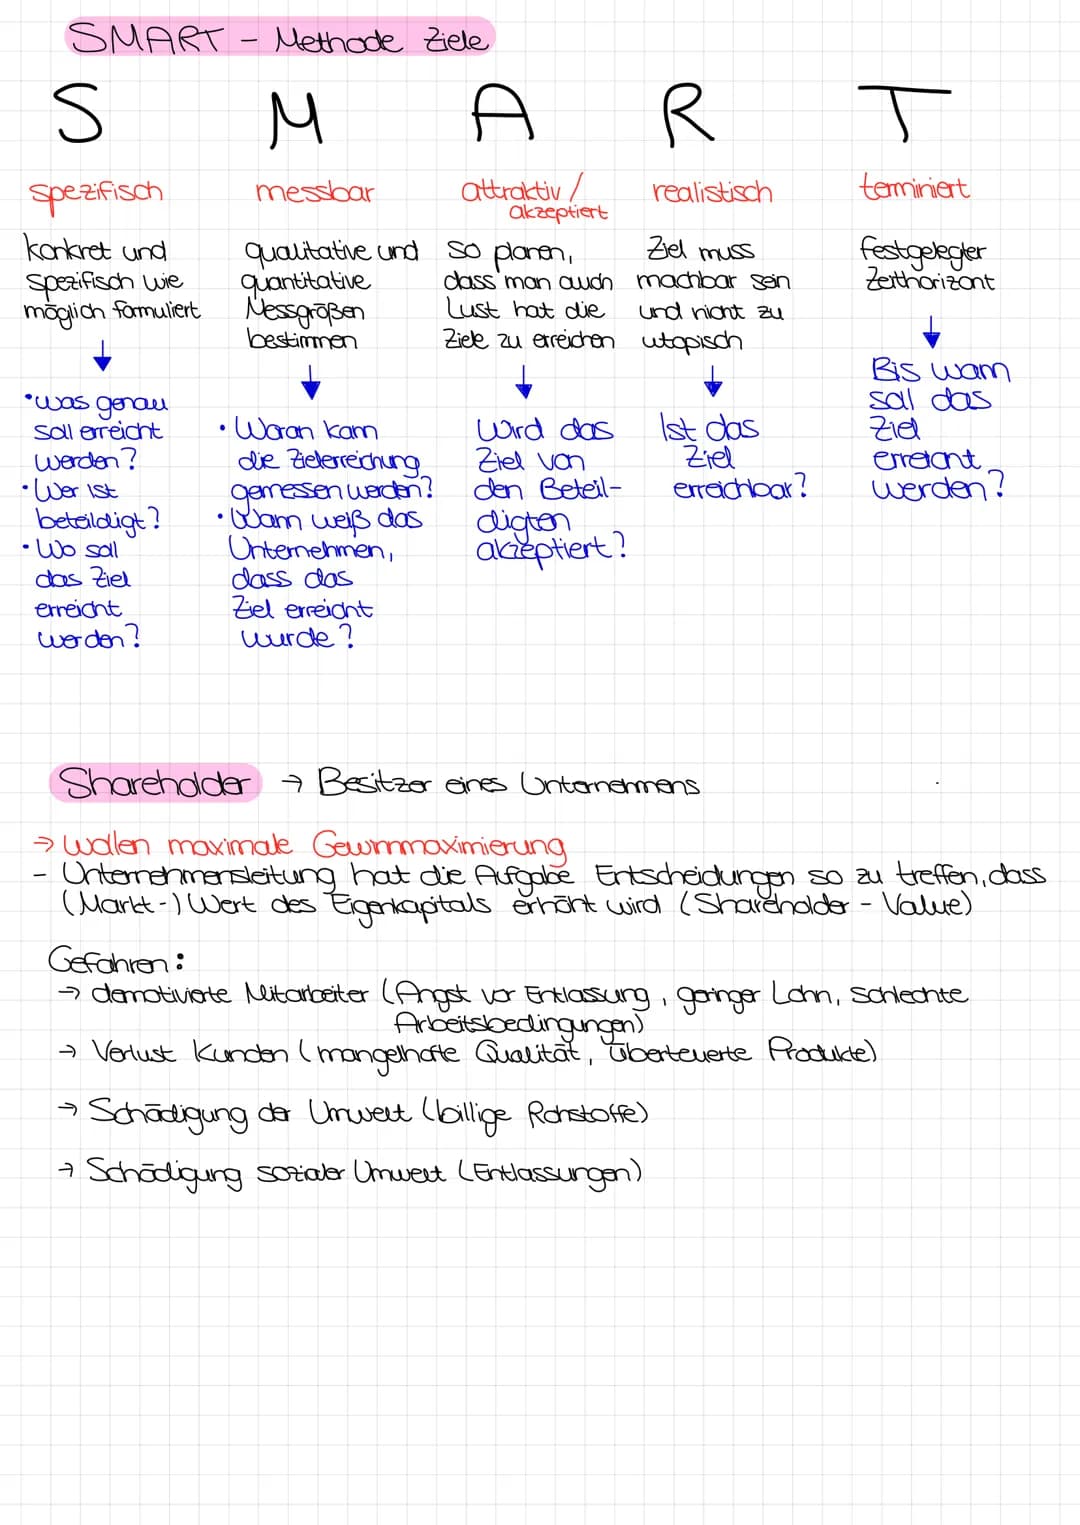 SMART - Methode Ziele
S M A R T
spezifisch
konkret und
spezifisch wie
möglich formuliert
• was genau
soll erreicht
werden?
• Wer ist
beteildigt?
• Wo soll
das Ziel
erreicht
werden?
messbar
qualitative und
quantitative
Messgrößen
bestimmen
• Woran kann
die Zielerreichung
gemessen werden?
• Wann weiß das
Unternehmen,
dass das
Ziel erreicht
wurde?
attraktiv /
akzeptiert
so planen,
dass man auch
Lust hat die
Ziele zu erreichen
Wird das
Ziel von
den Beteil-
digten
akzeptiert?
realistisch
Ziel muss
machbar sein
und nicht zu
utopisch
Ist das
Ziel
erreichbar?
terminiert
festgelegter
Zeithorizont
Bis wann
soll das
Ziel
erreicht
werden?
Shareholder → Besitzer eines Unternehmens
→ wollen maximale Gewinnmaximierung
- Unternehmensleitung hat die Aufgabe Entscheidungen so zu treffen, dass
(Markt-) Wert des Eigenkapitals erhöht wird (Shareholder - Value)
Gefahren:
→ demotivierte Mitarbeiter (Angst vor Entlassung, geringer Lohn, schlechte
Arbeitsbedingungen)
→ Verlust Kunden (mangelhafte Qualität, überteuerte Produkte)
→ Schädigung der Umwelt (billige Rohstoffe)
→ Schädigung sozialer Umwelt (Entlassungen)